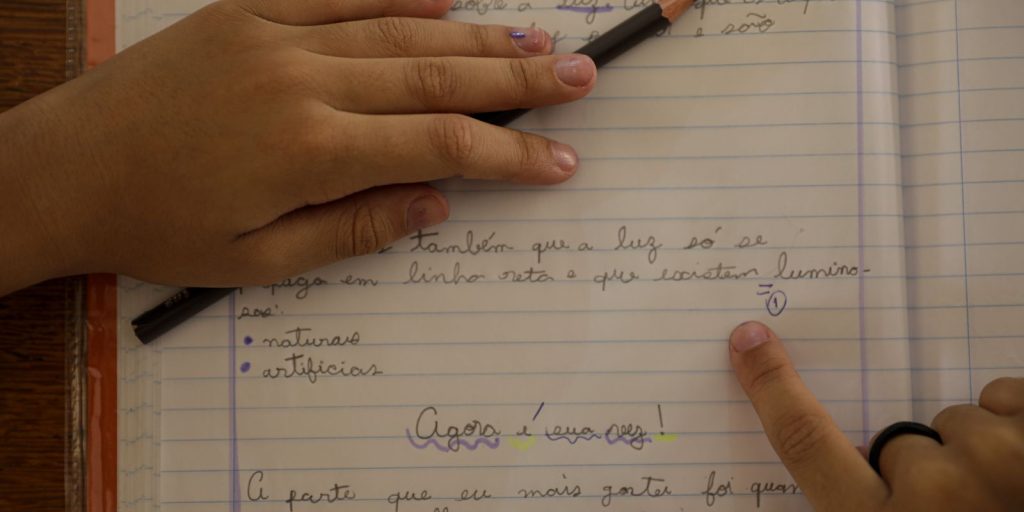 sobre a luz
e são
também que a luz só se
paga em linha reta e que existem lumino-
sos:
• naturais
• artificias
①
Agora é sua vez!
A parte que eu mais gostei foi quan